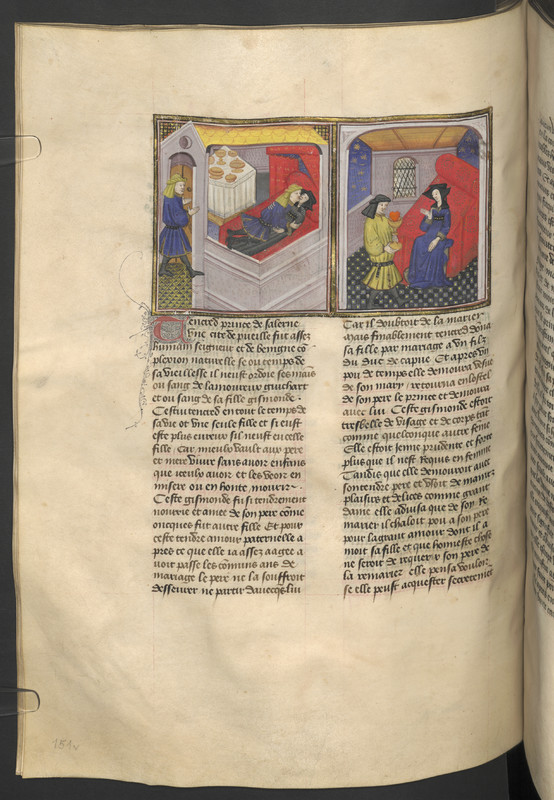 Tencred prince de salerne
vne cite de pueille fut assez
humain seigneur et de benigne cõ
plexion naturelle se ou temps de
sa vieillesse il neust ordoie ses mais
ou sang de lamoureux guischart
et ou sang de sa fille gismonde
Cestui tencred en tout le temps de
sa vie ot vne seule fille et si eust
este plus eureux sil neust eu celle
fille Car mieulx vault aux pere
et mere viure sans auoir enfans
que yceulx auoir et les veoir en
misere ou en honte mourir
Ceste gismonde fu si tendrement
nourrie et amee de son pere cõme
oncques fut autre fille Et pour
ceste tendre amour paternelle a
pres ce que elle ia assez aagee a
uoit passe les cõmuns ans de
mariage le pere ne la souffroit
desseurer ne partir dauecqs lui
Car il doubtoit de la marier
mais finablement tencred dona
sa fille par mariage a vn filz
du duc de capue Et apres vn
pou de temps elle demoura vesue
de son mary retourna en lostel
de son pere le prince et demoura
auec lui Ceste gismonde estoit
tresbelle de visage et de corps tãt
comme quelconque autre feme
Elle estoit jeune prudente et forte
plus que il nest requis en feme
Tandis que elle demouroit auec
son tendre pere et vsoit de mantz
plaisirs et delices comme grant
dame elle aduisa que de soy Re
marier il chaloit pou a son pere
pour la grant amour dont il a
moit sa fille et que honneste chose
ne seroit de requerir son pere de
la remarier elle pensa vouloir
se elle peust acquester secretement
151v